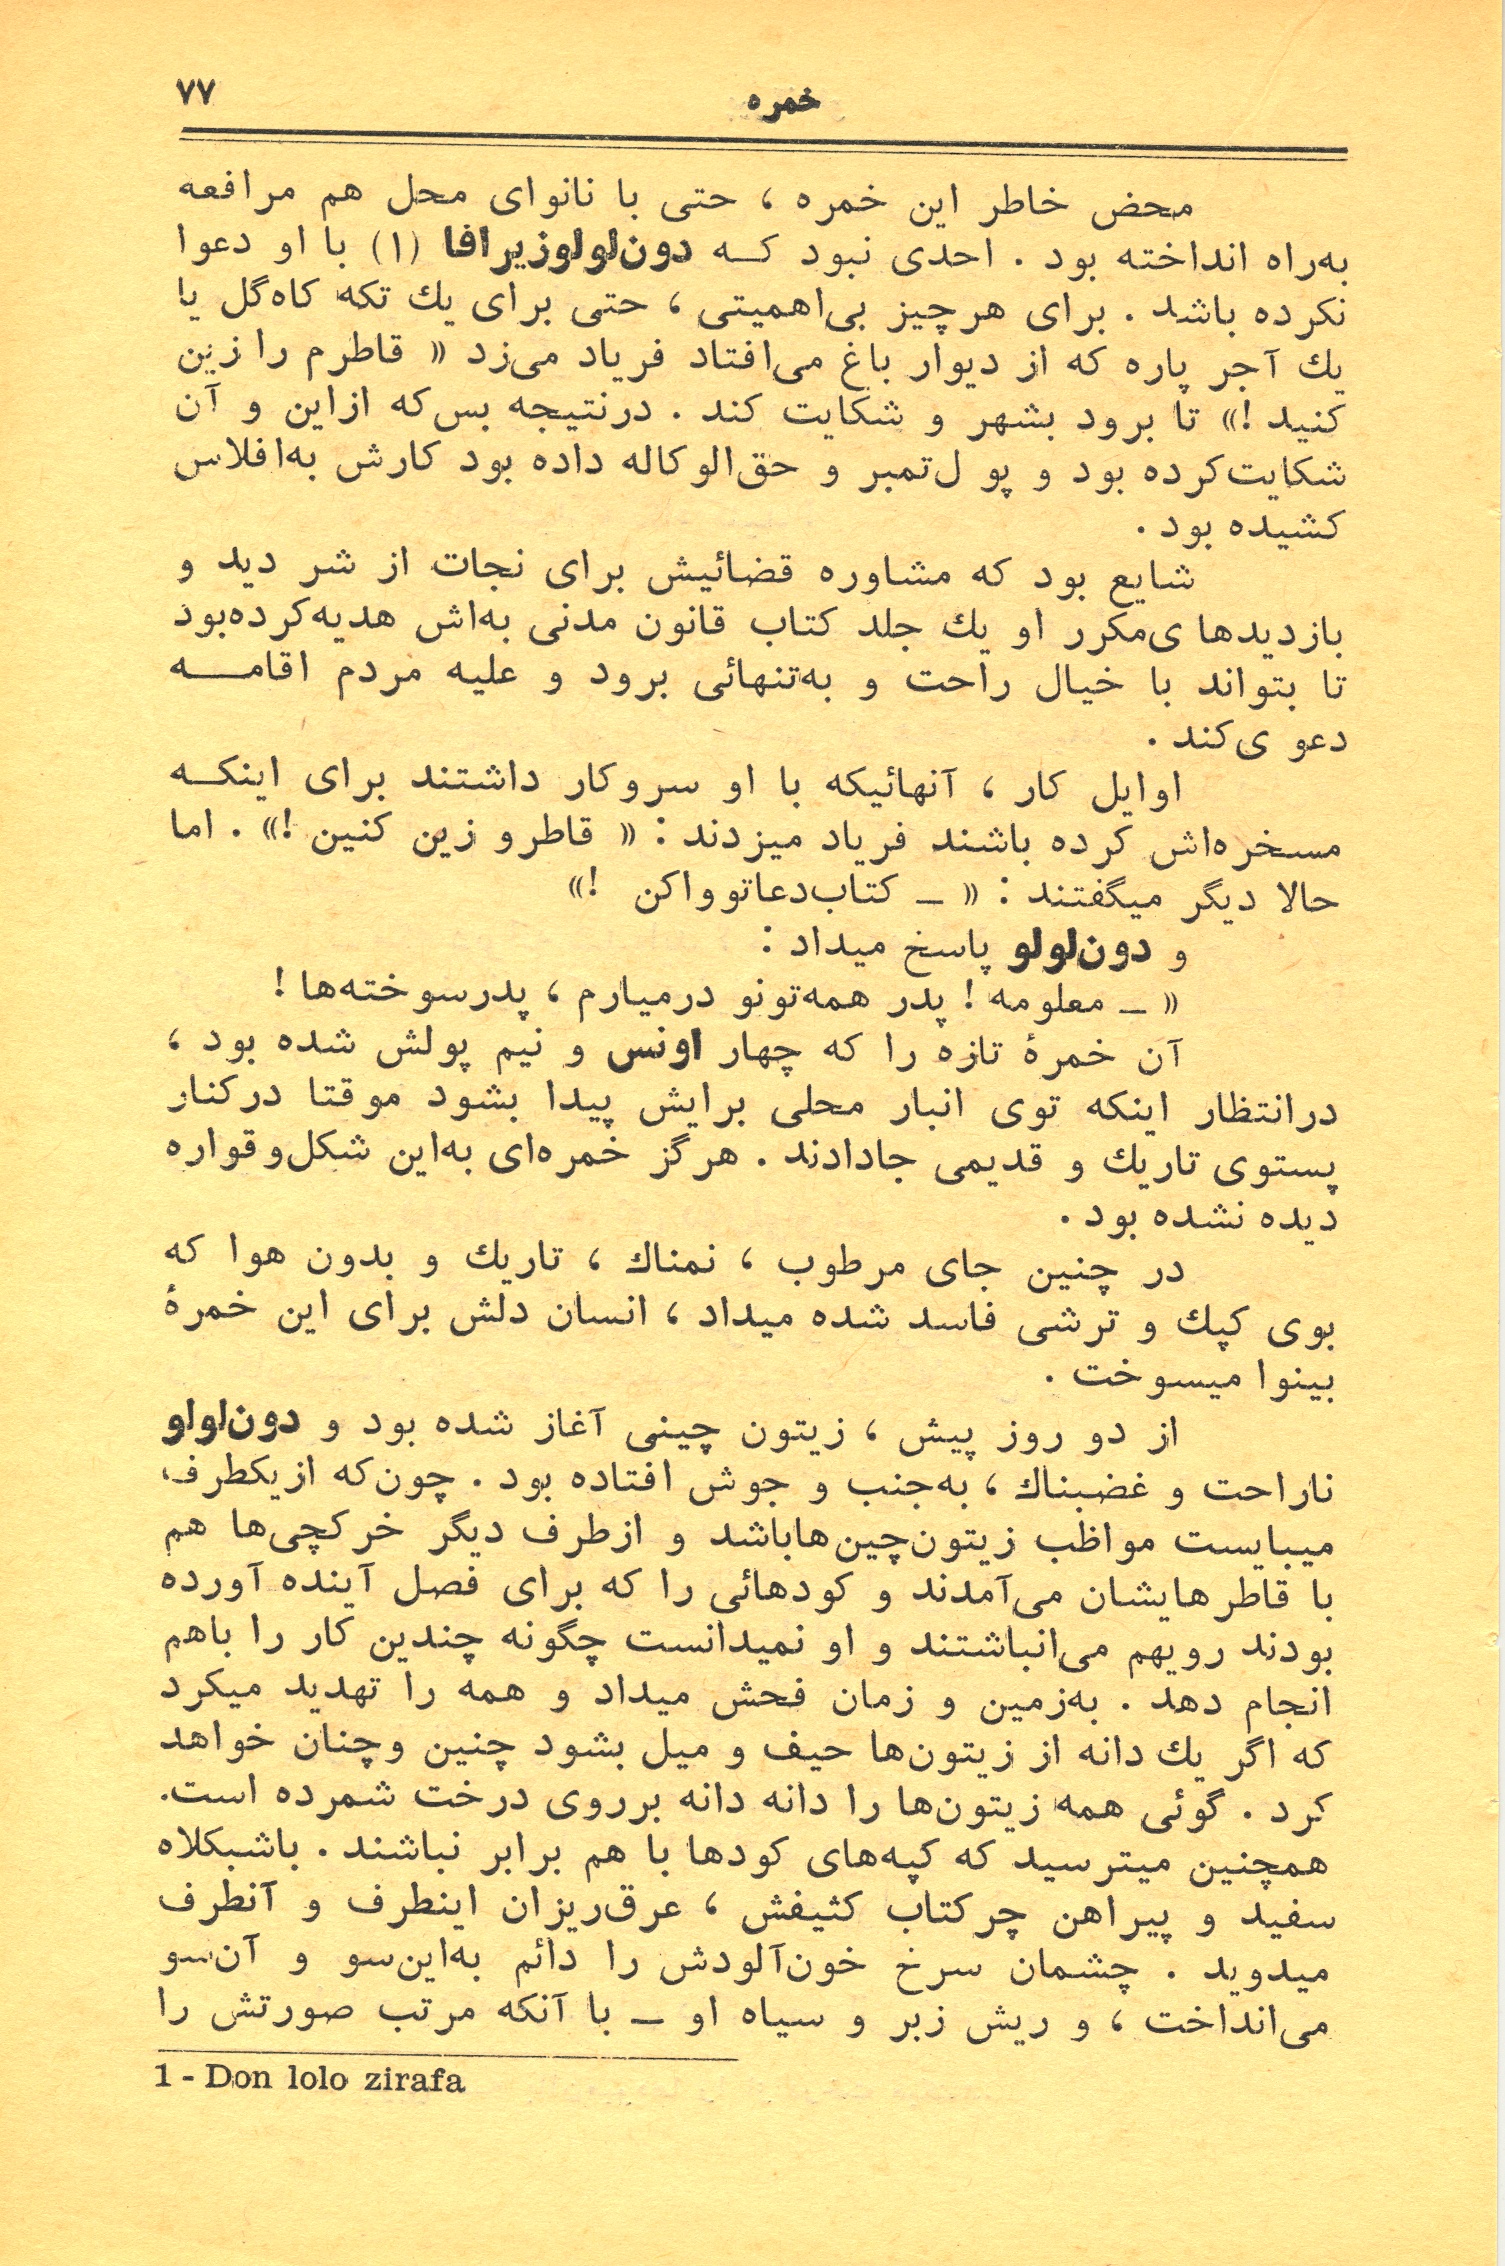 خمره ۷۷
محض خاطر این خمره ، حتی با نانوای محل هم مرافعه
به‌راه انداخته بود . احدی نبود کــه دون‌لولوزیرافا (۱) با او دعوا
نکرده باشد . برای هرچیز بی‌اهمیتی ، حتی برای یك تکه کاه‌گل یا
یك آجر پاره که از دیوار باغ می‌افتاد فریاد می‌زد « قاطرم را زین
کنید !» تا برود بشهر و شکایت کند . درنتیجه بس‌که ازاین و آن
شکایت‌کرده بود و پول‌تمبر و حق‌الوکاله داده بود کارش به‌افلاس
کشیده بود .
شایع بود که مشاوره قضائیش برای نجات از شر دید و
بازدیدهای‌مکرر او یك جلد کتاب قانون مدنی به‌اش هدیه‌کرده‌بود
تا بتواند با خیال راحت و به‌تنهائی برود و علیه مردم اقامــه
دعوی‌کند .
اوایل کار ، آنهائیکه با او سروکار داشتند برای اینکــه
مسخره‌اش کرده باشند فریاد میزدند : « قاطرو زین کنین !» . اما
حالا دیگر میگفتند : « ــ کتاب‌دعاتوواکن !»
و دون‌لولو پاسخ میداد :
« ــ معلومه ! پدر همه‌تونو درمیارم ، پدرسوخته‌ها !
آن خمرهٔ تازه را که چهار اونس و نیم پولش شده بود ،
درانتظار اینکه توی انبار محلی برایش پیدا بشود موقتا درکنار
پستوی تاریك و قدیمی جادادند . هرگز خمره‌ای به‌این شکل‌وقواره
دیده نشده بود .
در چنین جای مرطوب ، نمناك ، تاریك و بدون هوا که
بوی کپك و ترشی فاسد شده میداد ، انسان دلش برای این خمرهٔ
بینوا میسوخت .
از دو روز پیش ، زیتون چینی آغاز شده بود و دون‌لولو
ناراحت و غضبناك ، به‌جنب و جوش افتاده بود . چون‌که ازیکطرف،
میبایست مواظب زیتون‌چین‌هاباشد و ازطرف دیگر خرکچی‌ها هم
با قاطرهایشان می‌آمدند و کودهائی را که برای فصل آینده آورده
بودند رویهم می‌انباشتند و او نمیدانست چگونه چندین کار را باهم
انجام دهد . به‌زمین و زمان فحش میداد و همه را تهدید میکرد
که اگر یك دانه از زیتون‌ها حیف و میل بشود چنین وچنان خواهد
کرد . گوئی همه زیتون‌ها را دانه دانه برروی درخت شمرده است.
همچنین میترسید که کپه‌های کودها با هم برابر نباشند . باشبکلاه
سفید و پیراهن چرکتاب کثیفش ، عرق‌ریزان اینطرف و آنطرف
میدوید . چشمان سرخ خون‌آلودش را دائم به‌این‌سو و آن‌سو
می‌انداخت ، و ریش زبر و سیاه او ــ با آنکه مرتب صورتش را
1 - Don lolo zirafa